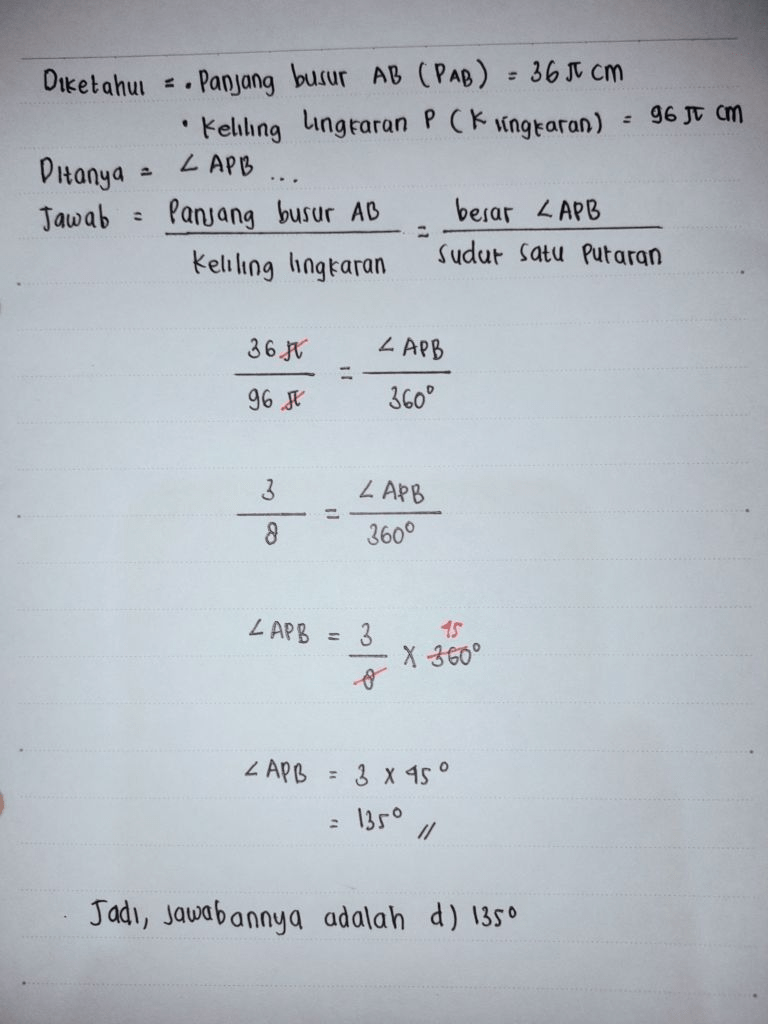 Diketahui = • Panjang busur AB (PAB) = 36 π cm
• Keliling lingkaran P (K lingkaran) = 96 π cm
Ditanya = ∠ APB ...
Jawab = Panjang busur AB / Keliling lingkaran = besar ∠APB / Sudut satu putaran
36 π / 96 π = ∠ APB / 360°
3 / 8 = ∠ APB / 360°
45
∠ APB = 3 / 8 x 360°
∠ APB = 3 x 45°
= 135° //
Jadi, jawabannya adalah d) 135°